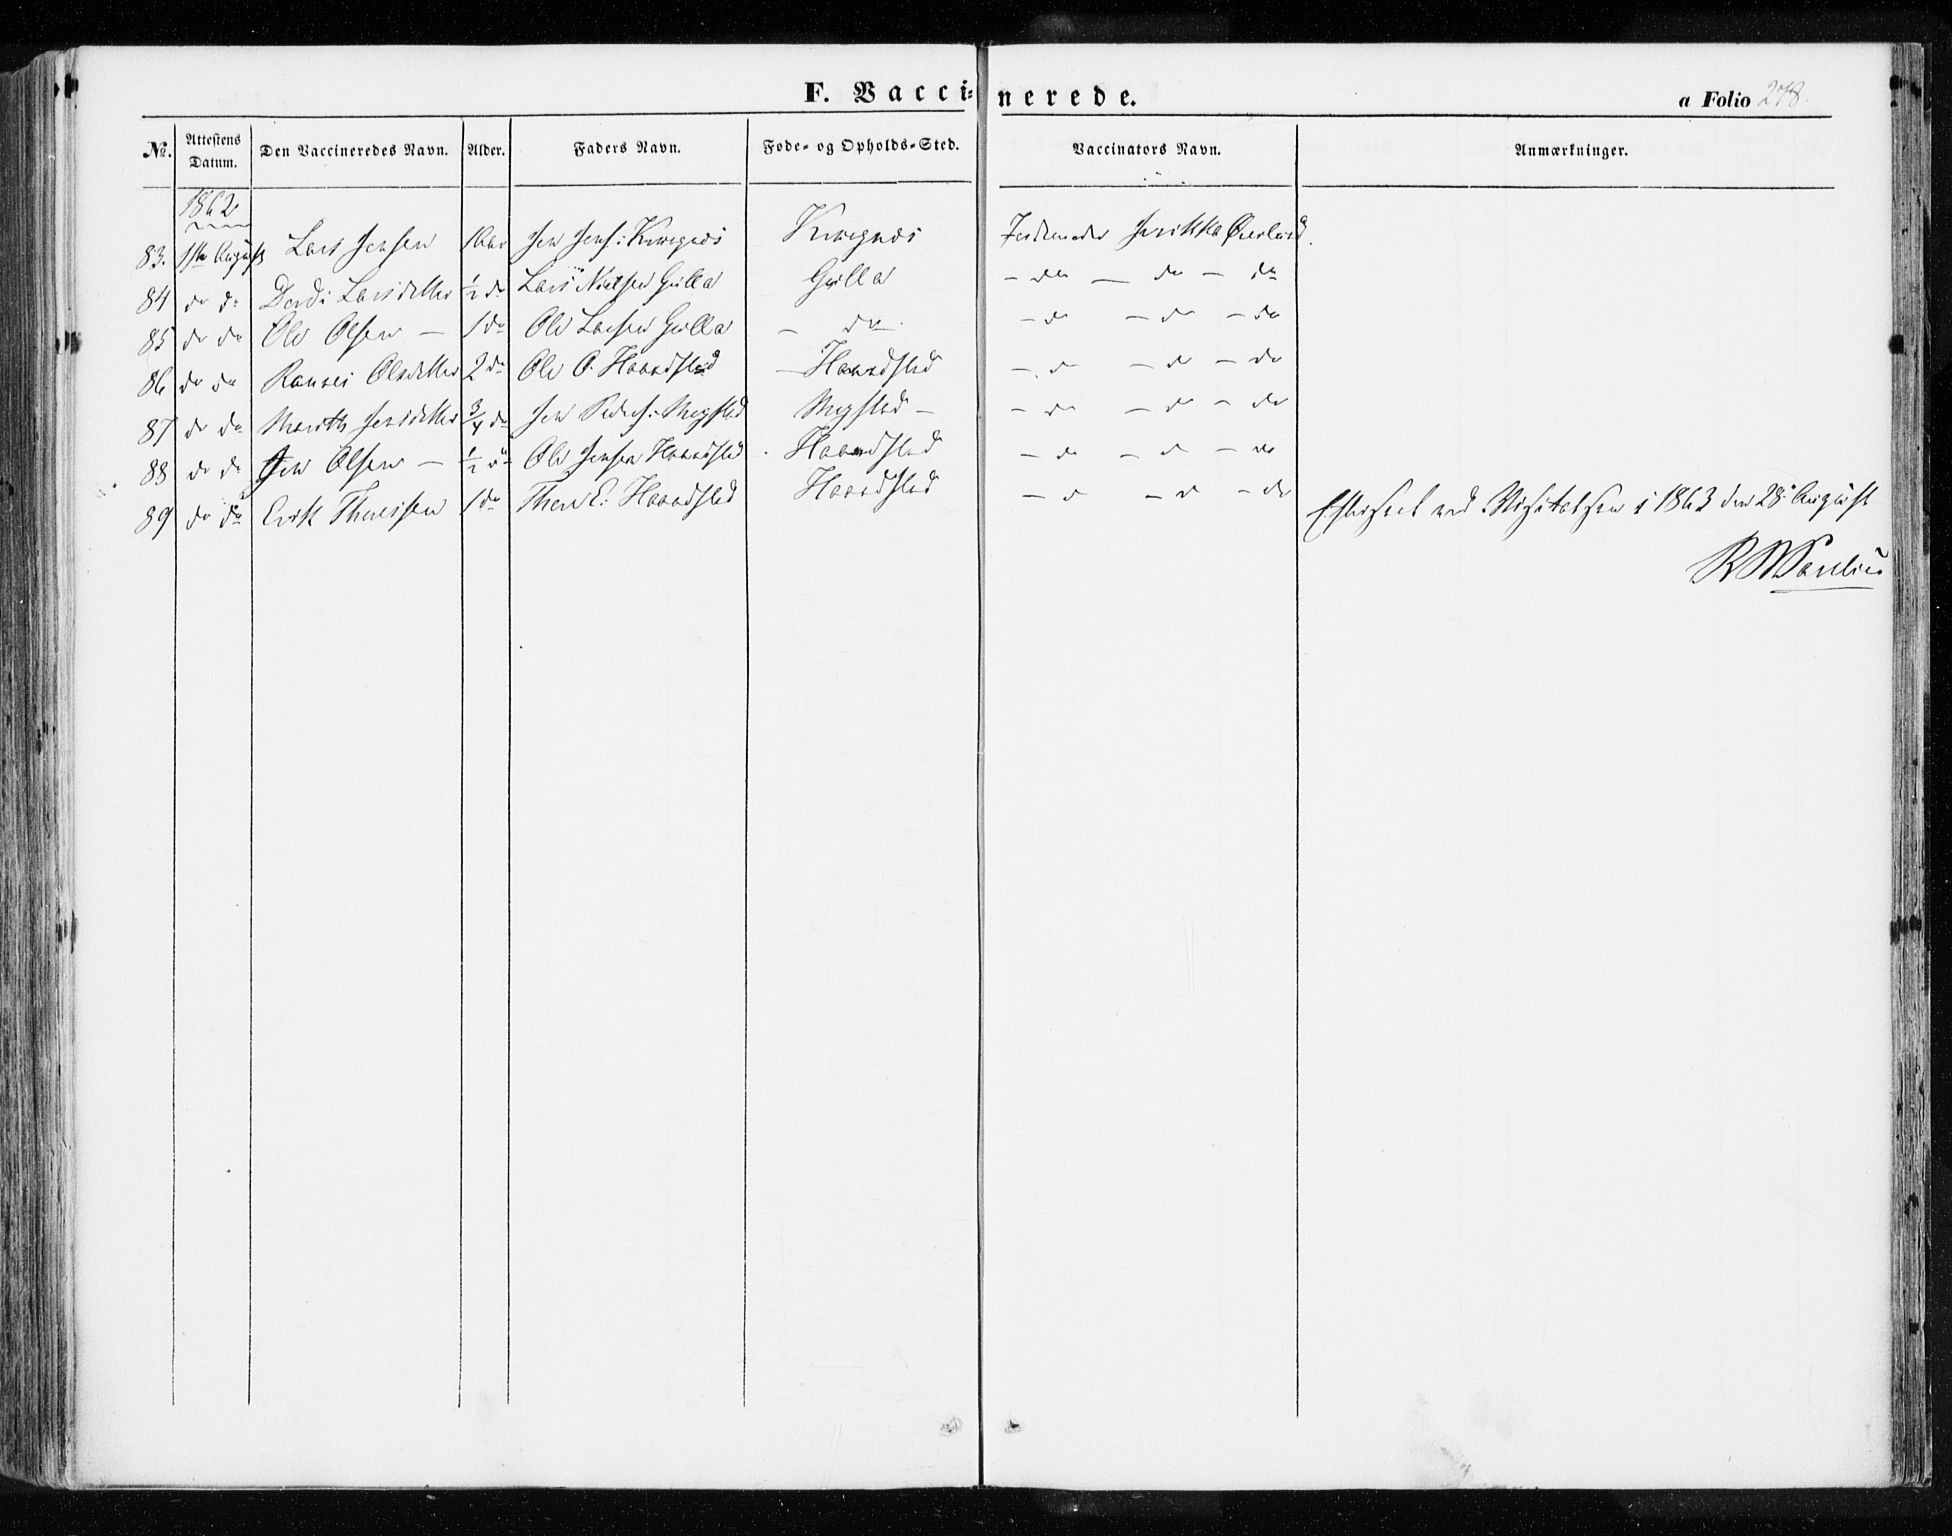 F. Vaccinerede.
a Folio 278.
No. Attestens Datum. Den Vaccineredes Navn. Alder. Faders Navn. Føde- og Opholds-Sted. Vaccinators Navn. Anmærkninger.
1862
83. 1ste August Lars Jensen Jen Jens: Jordemoder Øverland.
84 do do Larsdatter ½ do Lars Nielsen Gulla Gulla - do - do - do
85 do do Ole Olsen - 1 do Ole Larsen Gulla - do - do - do - do
86 do do Olsdatter 2 do Ole O. Haardstad - Haardstad - do - do - do
87 do do Marith Jensdatter ¾ do Jen Peders: Megstad Megstad - - do - do - do
88 do do Jen Olsen - ½ do Ole Jensen Haardstad Haardstad - do - do - do
89 do do Erik Thoresen 1 do Thore E: Haardstad Haardstad - do - do - do
Efterseet ved Visitatsen i 1863 den 28. August